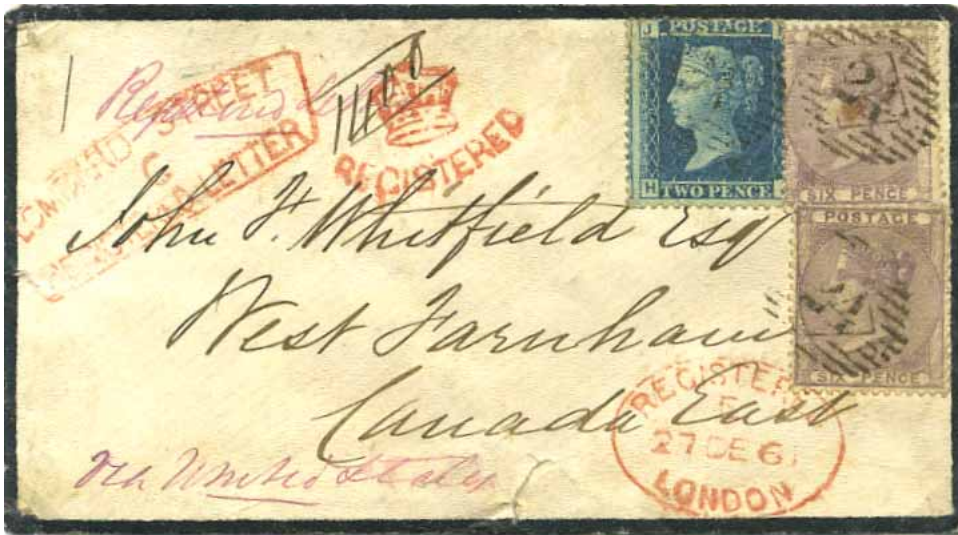 Registered Letter
LOMBARD STREET
C
LETTER
REGISTERED
POSTAGE
J
H
TWO PENCE
2
SIX PENCE
POSTAGE
2
SIX PENCE
John F. Whitfield Esq
West Farnham
Canada East
via United States
REGISTERED
27 DE 61
LONDON